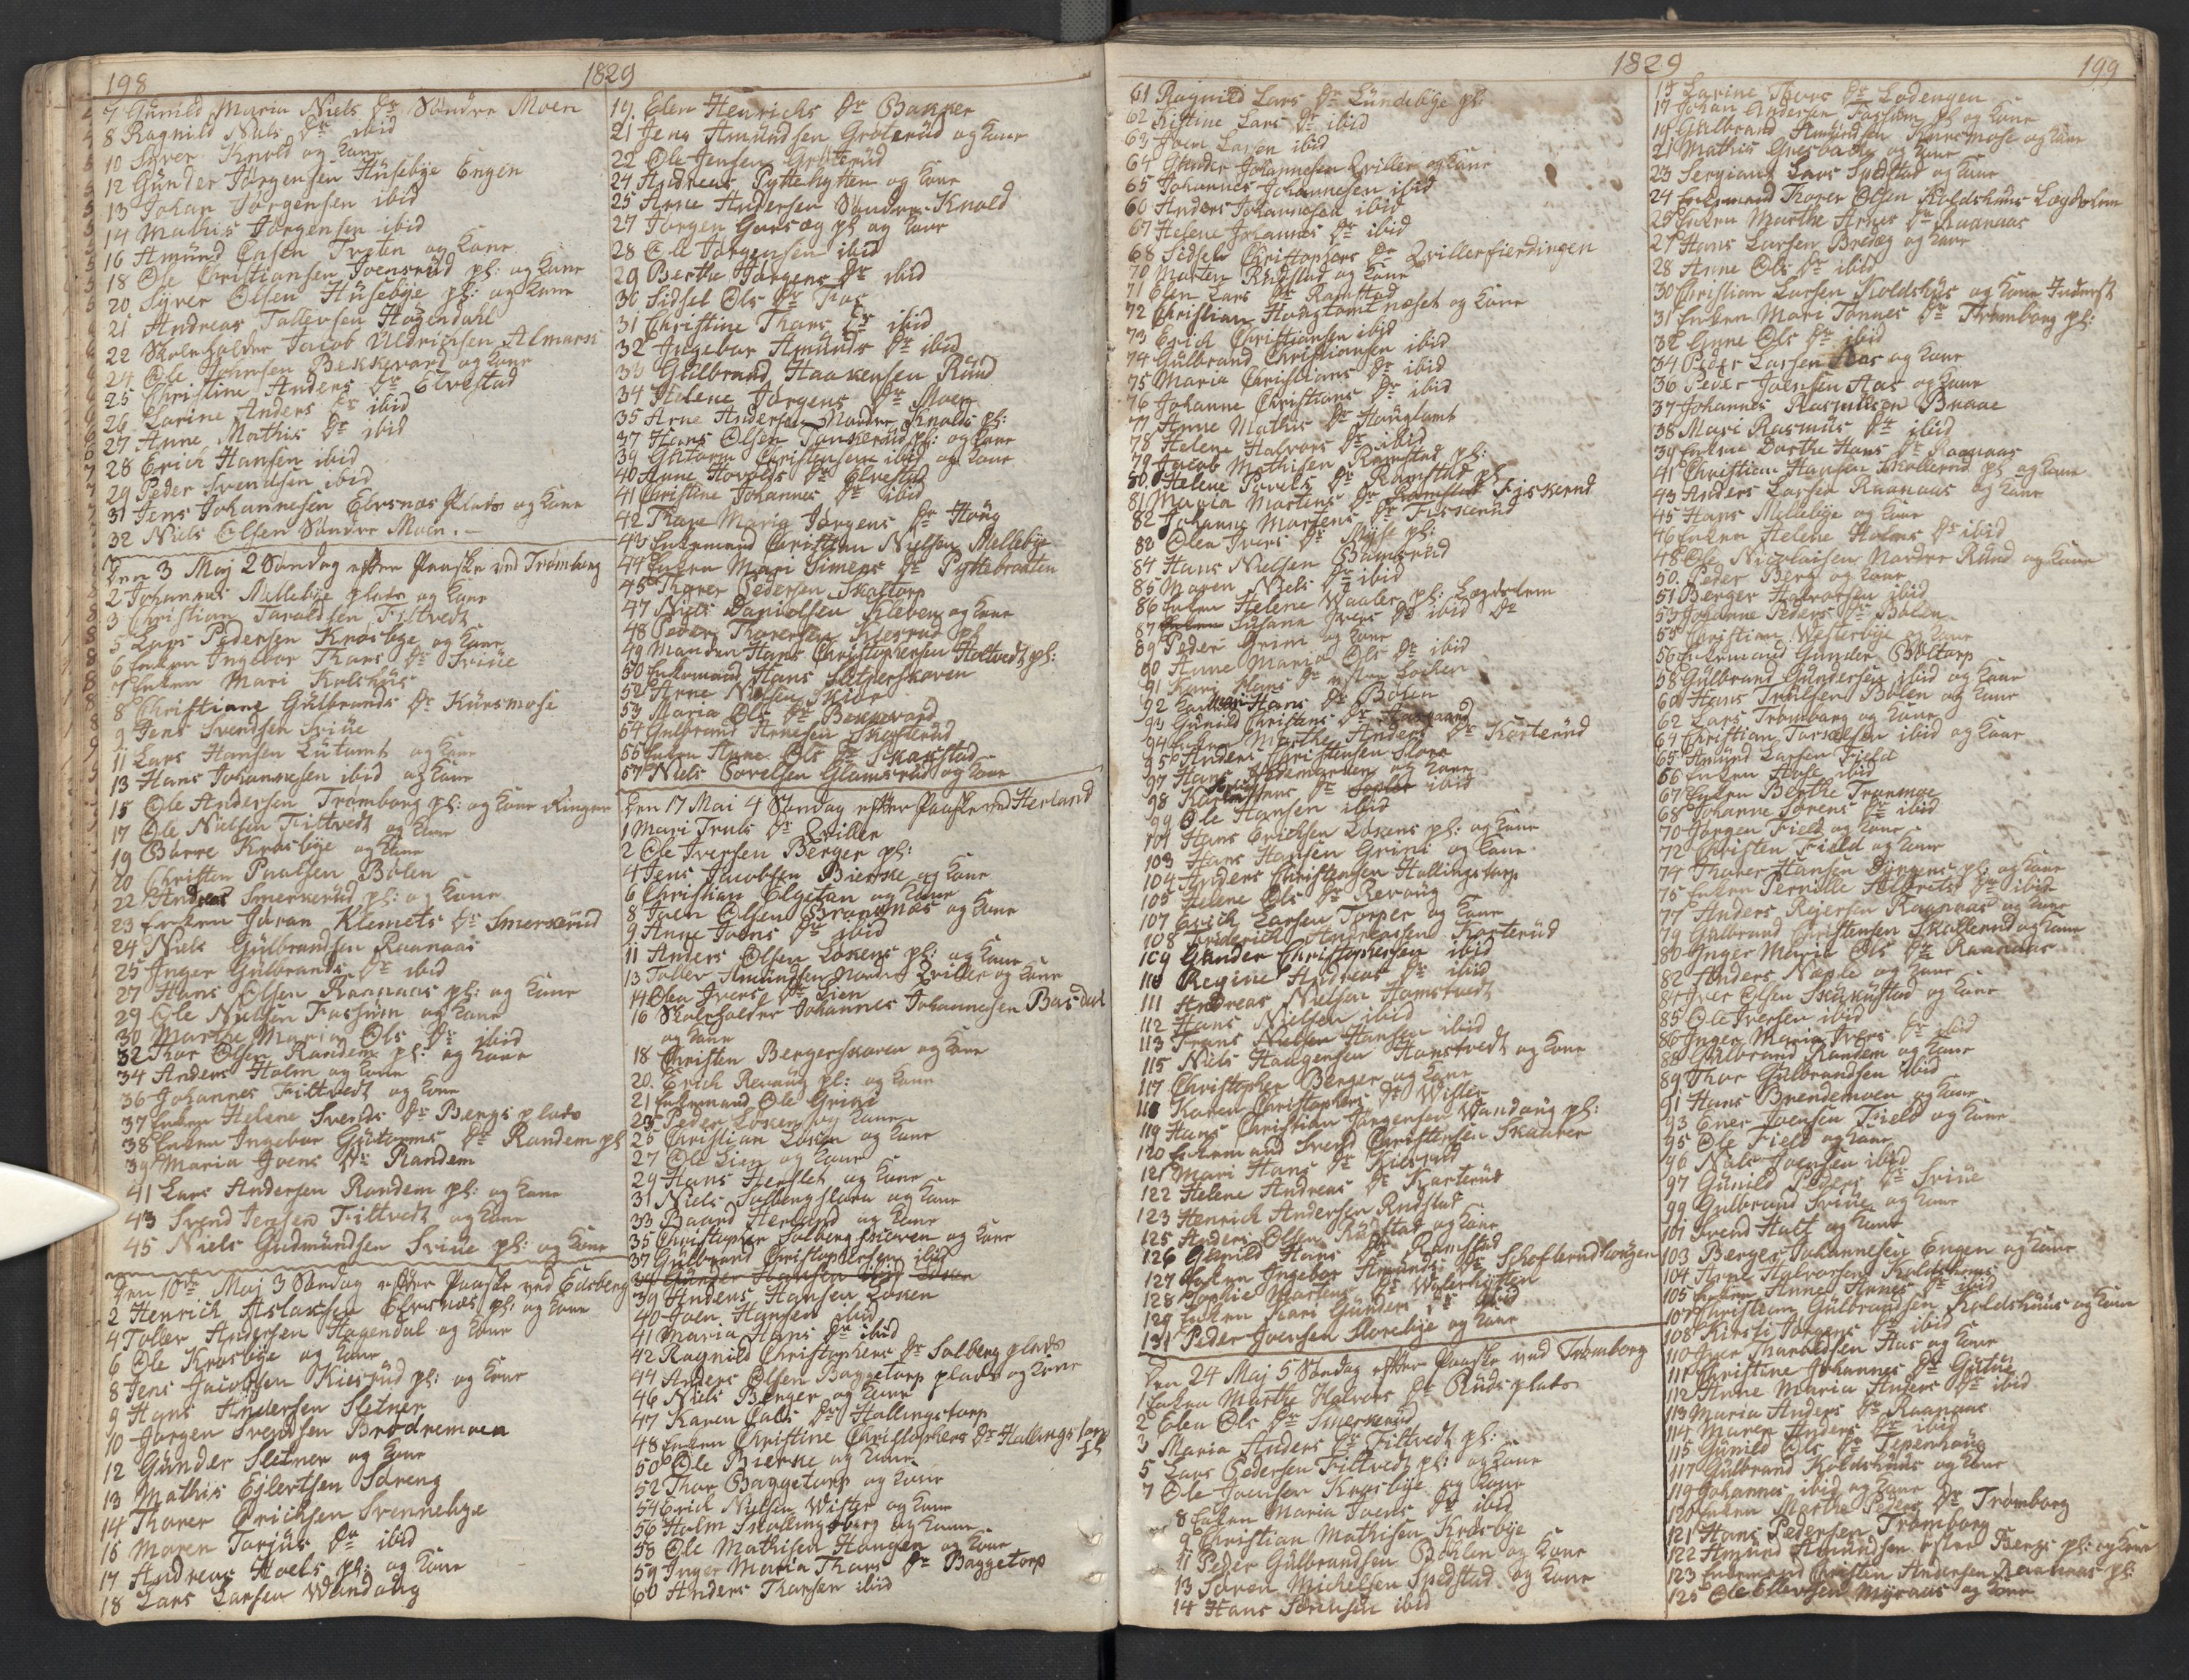 198
1829
7 Gunild Maria Niels Dr Søndre Moen
8 Ragnild Niels Dr ibid
10 Syver Knold og Kone
12 Günder Jørgensen Hüsebye Engen
13 Johan Jørgensen ibid
14 Mathis Jørgensen ibid
16 Amünd Olsen Træten og Kone
18 Ole Christiansen Joensrüd pl: og Kone
20 Syver Olsen Hüsebye pl: og Kone
21 Andreas Tollevsen Hagendahl
22 Skoleholder Jacob Uldrichsen Almarsi
24 Ole Johnsen Bekkevard og Kone
25 Christine Anders Dr Elvestad
26 Larine Anders Dr ibid
27 Anne Mathis Dr ibid
28 Erich Hansen ibid
29 Peder Svendsen ibid
31 Jens Johannesen Elvsnæs Plads og Kone
32 Niels Olsen Søndre Moen.
Den 3 Maj 2 Søndag efter Paaske ved Trømborg
2 Johannes Mellebye plads og Kone
3 Christian Taraldsen Filtvedt
5 Lars Pedersen Krosbye og Kone
6 Enken Ingebor Thors Dr Sviüe
7 Enken Mari Kolshüs
8 Christiane Gülbrands Dr Kürsmose
9 Jens Svendsen Sviüe
11 Lars Hansen Lütomt og Kone
13 Hans Johannesen ibid og Kone
15 Ole Andersen Trømborg pl: og Kone Ringer
17 Ole Nielsen Filtvedt og Kone
19 Børre Krosbye og Kone
20 Christen Paalsen Bølen
22 Andreas Smerkerüd pl: og Kone
23 Enken Joran Klemets Dr Smerkerüd
24 Niels Gülbrandsen Raanaas
25 Inger Gülbrands Dr ibid
27 Hans Olsen Raanaas pl: og Kone
29 Ole Nielsen Fossüm og Kone
30 Marthe Maria Ols Dr ibid
32 Thor Olsen Randem pl: og Kone
34 Anders Holm og Kone
36 Johannes Filtvedt og Kone
37 Enken Helene Svends Dr Bergs plads
38 Enken Ingebor Gütorms Dr Randem pl
39 Maria Joens Dr Randem
41 Lars Andersen Randem pl: og Kone
43 Svend Jensen Filtvedt og Kone
45 Niels Gudmündsen Sviüe pl: og Kone
Den 10de Maj 3 Søndag efter Paaske ved Eidsberg
2 Henrich Aslaksen Elvsnæs pl: og Kone
4 Toller Andersen Hagendal og Kone
6 Ole Krosbye og Kone
8 Jens Jacobsen Kiesrüd pl: og Kone
9 Hans Andersen Sletner
10 Jørgen Svendsen Brødremoen
12 Günder Sletner og Kone
13 Mathis Eilertsen Søreng
14 Thorer Erichsen Svennebye
15 Maren Tarjüs Dr ibid
17 Andreas Hoels pl: og Kone
18 Lars Larsen Wandaüg
19. Elen Henrichs Dr Bakker
21 Jens Amündsen Groterüd og Kone
22 Ole Jensen Groterüd
24 Andreas Pyttehytten og Kone
25 Arne Andersen Søndre Knold
27 Jørgen Gaasøg pl og Kone
28 Ole Jørgensen ibid
29 Berthe Jørgens Dr ibid
30 Sidsel Ols Dr Fos
31 Christine Thors Dr ibid
32 Ingebor Amünds Dr ibid
33 Gülbrand Haakensen Rüüd
34 Helene Jørgens Dr Moen
35 Arne Andersen Nordre Knolds pl:
37 Hans Olsen Tønnerüd pl: og Kone
39 Gütorm Christensen ibid og Kone
40 Anne Hovelds Dr Elvestad
41 Christine Johannes Dr ibid
42 Thore Maria Jørgens Dr Houg
43 Enkemand Christian Nielsen Mellebye
44 Enken Mari Simens Dr Pyttebraaten
45 Thorer Pedersen Skoltorp
47 Niels Danielsen Kleven og Kone
48 Peder Thoresen Kiesrüd pl
49 Manden Hans Christophersen Holtvedt pl:
50 Enkemand Hans Sletnerskoven
52 Arne Nielsen Skiør
53 Maria Ols Dr Bekkevard
54 Gulbrand Arnesen Skofterüd
55 Enken Anne Ols Dr Skarstad
57 Niels Povelsen Glamsrüd og Kone
Den 17 Mai 4 Søndag efter Paaske ved Herland
1 Mari Truls Dr Qviller
2 Ole Iversen Berger pl:
4 Jens Jacobsen Bierke og Kone
6 Christian Elgetan og Kone
8 Joen Olsen Brandnæs og Kone
9 Anne Joens Dr ibid
11 Anders Olsen Løkens pl: og Kone
13 Toller Amündsen Nordre Qviller og Kone
14 Olea Ivers Dr Lien
16 Skoleholder Johannes Johannesen Berdal
og Kone
18 Christen Bergerskoven og Kone
20. Erich Revaüg pl: og Kone
21 Enkemand Ole Grini
23 Peder Løken og Kone
25 Christian Løken og Kone
27 Ole Lien og Kone
29 Hans Herslet og Kone
31 Niels Solberg slora og Kone
33 Baard Herland og Kone
35 Christopher Solbergskoven og Kone
37 Gülbrand Christophersen ibid
39 Anders Hansen Løken
40 Joen Hansen ibid
41 Maria Hans Dr ibid
42 Ragnild Christophers Dr Solberg plads
44 Anders Olsen Baggetorp plads og Kone
46 Niels Berger og Kone
47 Karen Ols Dr Hallingstorp
48 Enken Christine Christophers Dr Hallingstorp pl
50 Ole Bierke og Kone
52 Thor Baggetorp og Kone
54 Erich Nielsen Wister og Kone
56 Holm Skollingsberg og Kone
58 Ole Mathisen Haugen og Kone
59 Inger Maria Thors Dr Baggetorp
60 Anders Thorsen ibid
1829
199
61 Ragnild Lars Dr Lündebye pl:
62 Kistine Lars Dr ibid
63 Joen Larsen ibid
64 Gunder Johannesen Qviller og Kone
65 Johannes Johannesen ibid
66 Anders Johannesen ibid
67 Helene Johannes Dr ibid
68 Sidsele Christophers Dr Qvillerfierdingen
70 Morten Rüdstad og Kone
71 Elen Lars Dr Ramstad
72 Christian Hougtomtnæset og Kone
73 Erich Christiansen ibid
74 Gülbrand Christiansen ibid
75 Maria Christians Dr ibid
76 Johanne Christians Dr ibid
77 Anne Mathis Dr Houglomt
78 Helene Halvors Dr ibid
79 Jacob Mathisen Ramstad pl:
80. Helene Povels Dr Ramstad pl
81 Maria Mortens Dr Ramstad Fiskerud
82 Johanne Mortens Dr Fiskerüd
83 Olea Ivers Dr Mysse pl:
84 Hans Nielsen Bamsrüd
85 Maren Niels Dr ibid
86 Enken Helene Waaler pl: Lægdslem
87 Enken Susane Ivers Dr ibid Dr
89 Peder Grini og Kone
90 Anne Maria Ols Dr ibid
91 Kari Hans Dr Løken
92 Hans Dr Bølen
93 Gunild Christens Dr
94 Enken Marthe Anders Dr Korterüd
95 Anders Christensen Slora
97 Hans Hedemarken og Kone
98 Karen Hans Dr ibid
99 Ole Hansen ibid
101 Hans Erichsen Løkens pl: og Kone
103 Hans Hansen Grini og Kone
104 Anders Christensen Hallingstorp
105 Helene Ols Dr Revaüg
107 Erich Larsen Torper og Kone
108 Friderich Andreasen Korterüd
109 Gunder Christophersen ibid
110 Regine Andreas Dr ibid
111 Andreas Nielsen Homstvedt
112 Hans Nielsen ibid
113 Frans Nielsen Hansen ibid
115 Niels Haagensen Honstvedt og Kone
117 Christopher Berger og Kone
118 Karen Christophers Dr Wister
119 Hans Christian Jørgensen Wandaüg pl:
120 Enkemand Svend Christensen Skaürer
121 Mari Hans Dr Kiesrüd
122 Helene Andreas Dr Korterüd
123 Henrich Andersen Rudstad
125 Anders Olsen Rüdstad og Kone
126 Gunild Hans Dr Ramstad
127 Enken Ingebor Amünds Dr Skofterudhougen
128 Sophie Mortens Dr Waterhytten
129 Enken Kari Günders Dr ibid
131 Peder Joensen Slorebye og Kone
Den 24 Maj 5 Søndag efter Paaske ved Trømborg
1 Enken Marthe Halvors Dr Rüds plads
2 Elen Ols Dr Smerkerüd
3 Maria Anders Dr Filtvedt pl:
5 Lars Pedersen Filtvedt pl: og Kone
7 Ole Joensen Krosbye og Kone
8 Enken Maria Joens Dr ibid
9 Christian Mathisen Krosbye
11 Peder Gülbrandsen Bøhlen og Kone
13 Søren Michelsen Spedstad og Kone
14 Hans Sørensen ibid
15 Larine Thors Dr Lodengen
17 Johan Andersen Fossüm pl og Kone
19 Gülbrand Amündsen Kürsmose og Kone
21 Mathis Gresbacky og Kone
23 Sergiant Lars Spedstad og Kone
24 Enkemand Thorer Olsen Koldshuus Lægdslem
25 Enken Marthe Arnes Dr Raanaas
27 Hans Larsen Bredeg og Kone
28 Anne Ols Dr ibid
30 Christian Larsen Koldshüs og Kone Inderst
31 Enken Mari Tonnes Dr Trømborg pl:
32 Gune Ols Dr ibid
34 Peder Larsen Aas og Kone
36 Peder Joensen Aas og Kone
37 Johannes Rasmüssen Braae
38 Mari Rasmüs Dr ibid
39 Enken Dorthe Hans Dr Raanaas
41 Christian Hansen Skallerud pl og Kone
43 Anders Larsen Raanaas og Kone
45 Hans Mellebye og Kone
46 Enken Helene Holms Dr ibid
48 Ole Nicolaisen Nordre Rüüd og Kone
50. Peder Berg og Kone
51 Berger Halvorsen ibid
53 Johanne Peders Dr Bølen
55 Christian Westerbye og Kone
56 Enkemand Gunder Bøltorp
58 Gülbrand Gundersen ibid og Kone
60 Hans Truelsen Bølen og Kone
62 Lars Trømborg og Kone
64 Christian Torsøesen ibid og Kone
65 Amünd Larsen Field
66 Enken Aase ibid
67 Enken Berthe Tranmoe
68 Johanne Sørens Dr ibid
70 Jørgen Field og Kone
72 Christen Field og Kone
74 Thorer Hansen Dyngens pl: og Kone
75 Enken Pernille Dr ibid
77 Anders Rejersen Raanaas og Kone
79 Gulbrand Christensen Skallerud og Kone
80 Inger Maria Ols Dr Raanaas
82 Anders Næple og Kone
84 Iver Olsen Sküküstad og Kone
85 Ole Iversen ibid
86 Inger Maria Ivers Dr ibid
88 Gülbrand Randem og Kone
89 Thor Gülbrandsen ibid
91 Hans Brendemoen og Kone
93 Ener Joensen Field og Kone
95 Ole Field og Kone
96 Niels Joensen ibid
97 Gunild Peders Dr Sviüe
99 Gulbrand Sviüe og Kone
101 Svend Hatt og Kone
103 Berger Johannesen Engen og Kone
104 Arne Halvorsen Koldshuus
105 Enken Anne Arnes Dr ibid
107 Christian Gülbrandsen Koldshüüs og Kone
108 Kirsti Jørgens Dr ibid
110 Iver Marbodsen Aas og Kone
111 Christine Johannes Dr Gütüe
112 Anne Maria Anders Dr ibid
113 Maria Anders Dr Raanaas
114 Maren Anders Dr ibid
115 Gunild Ols Dr Tepenhaüg
117 Gülbrand Koldshüüs og Kone
119 Johannes ibid og Kone
120 Enken Marthe Peders Dr Trømborg
121 Hans Pedersen Trømborg
122 Amünd Amündsen Bergs pl: og Kone
123 Enkemand Christen Andersen Raanaas pl:
125 Ole Ellevsen Myraas og Kone